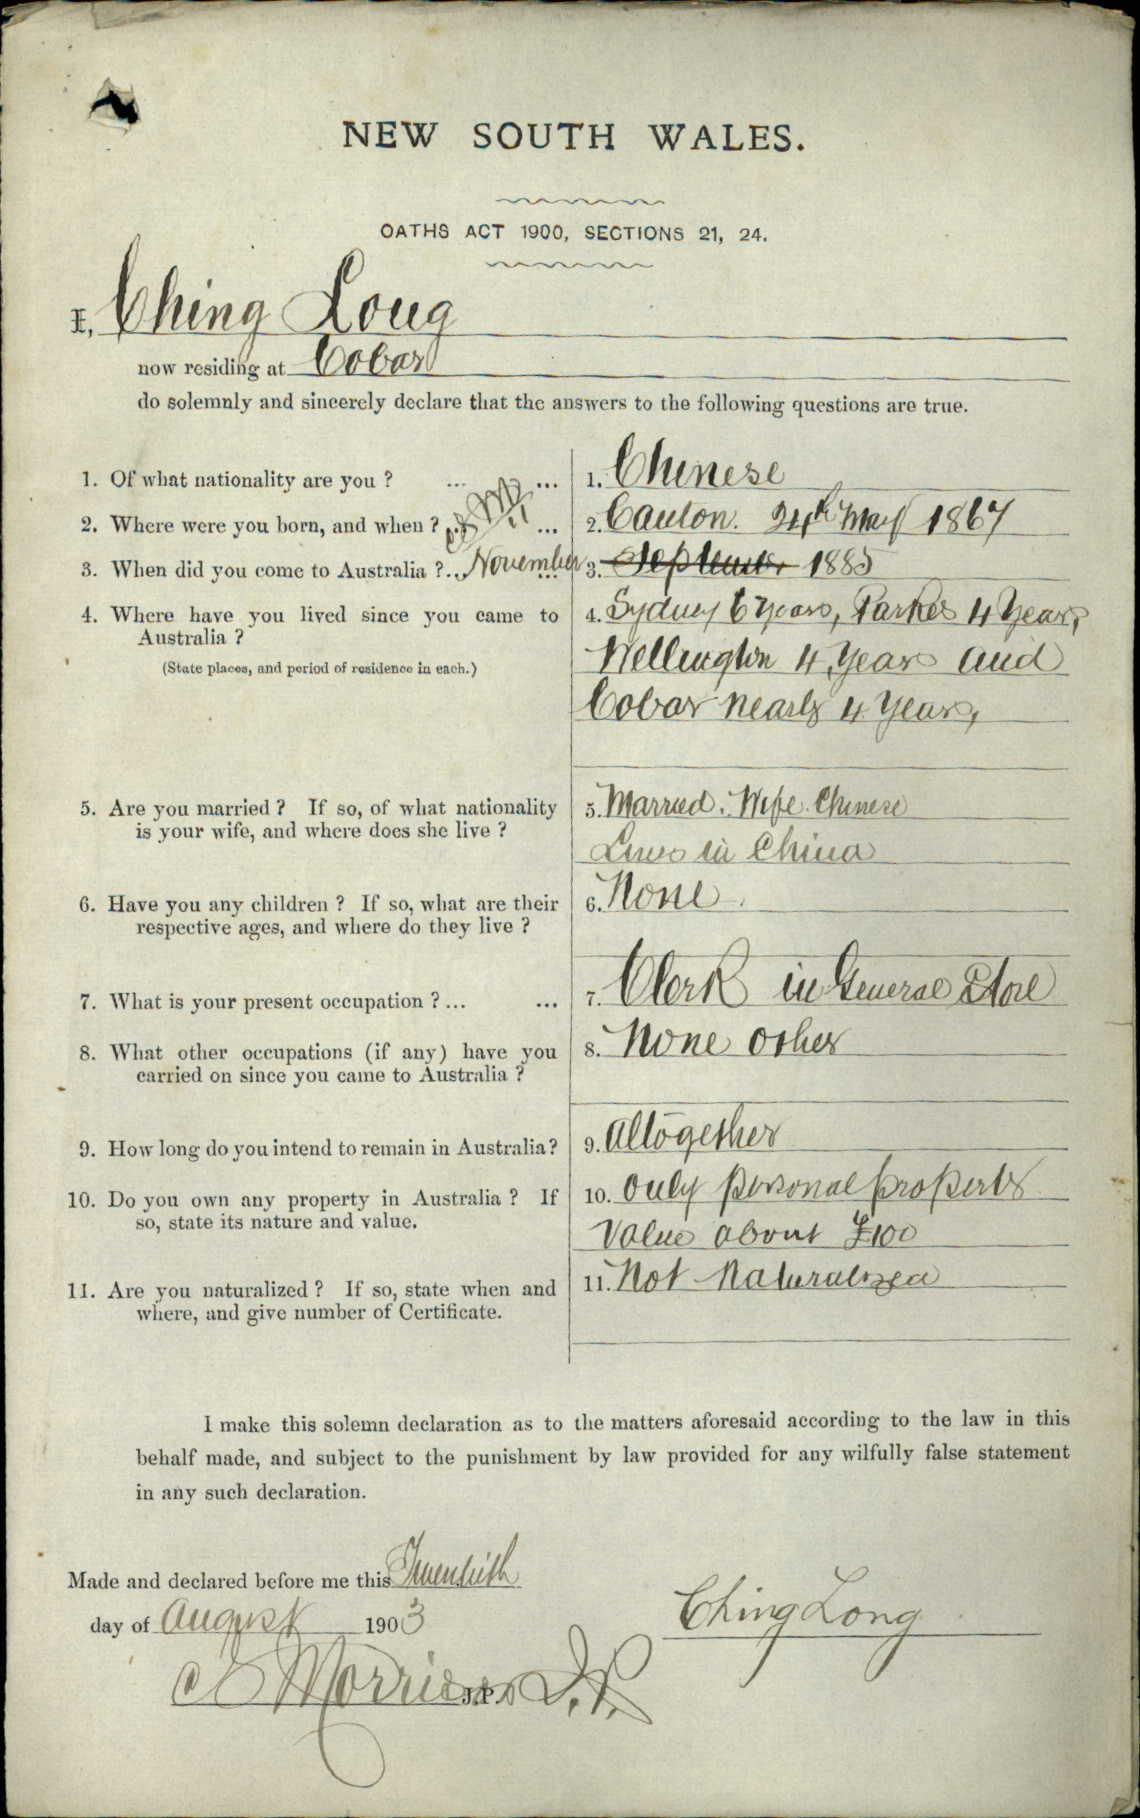 NEW SOUTH WALES.
OATHS ACT 1900, SECTIONS 21, 24.
I, Ching Long
now residing at Cobar
do solemnly and sincerely declare that the answers to the following questions are true.
1. Of what nationality are you ? ... ... 1. Chinese
2. Where were you born, and when ? ... ... 2. Canton. 24th May 1867
3. When did you come to Australia ? ... November ... 3. September 1885
4. Where have you lived since you came to 4. Sydney 6 Years, Parkes 4 Years,
Australia ?
(State places, and period of residence in each.) Wellington 4 Years and
Cobar nearly 4 Years,
5. Are you married ? If so, of what nationality 5. Married. Wife Chinese
is your wife, and where does she live ? Lives in China
6. Have you any children ? If so, what are their 6. None.
respective ages, and where do they live ?
7. What is your present occupation ? ... ... 7. Clerk in General Store
8. What other occupations (if any) have you 8. None other
carried on since you came to Australia ?
9. How long do you intend to remain in Australia? 9. altogether
10. Do you own any property in Australia ? If 10. only personal property
so, state its nature and value. Value about £100
11. Are you naturalized ? If so, state when and 11. Not Naturalized
where, and give number of Certificate.
I make this solemn declaration as to the matters aforesaid according to the law in this
behalf made, and subject to the punishment by law provided for any wilfully false statement
in any such declaration.
Made and declared before me this Twentieth
day of August 1903
Ching Long
Morrison J.P. J.P.